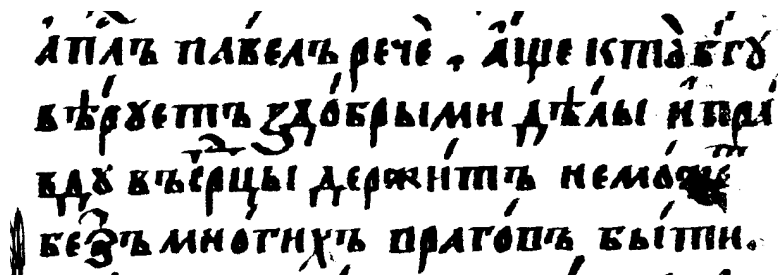 а҆пⷭ҇лъ павелъ речѐ . а҆́ще кто̀ бг҃у
вѣ́руетъ здо́брыми дѣ́лы и҆пра́
вду въсрⷣцы держи́тъ немо́жетъ
безъ мно́гихъ враго́въ бы́ти.